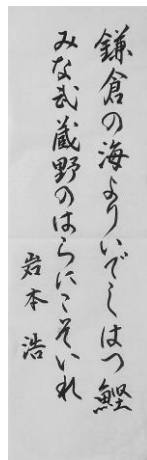 鎌倉の海よりいでしはつ鰹
みな武蔵野のはらにこそいれ
岩本浩